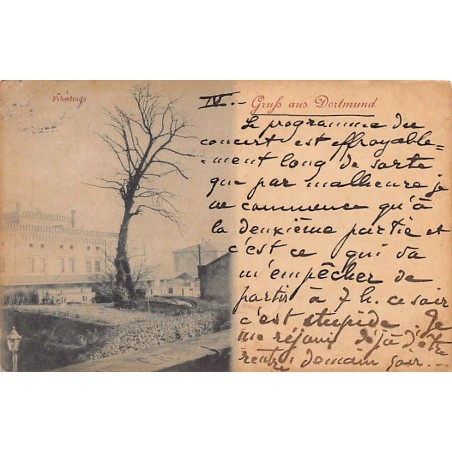 IV.-
Gruß aus Dortmund
Le programme du
concert est effroyable-
-ment long de sorte
que par malheure je
ne commence qu'à
la deuxième partie et
c'est ce qui va
m'empêcher de
partir à 7 h. ce soir
c'est stupide. Je
me réjouis déjà d'être
rentrée domain soir...-